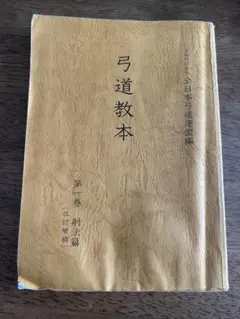 全日本弓道連盟編
弓道教本
第一巻 射法篇
［改訂増補］